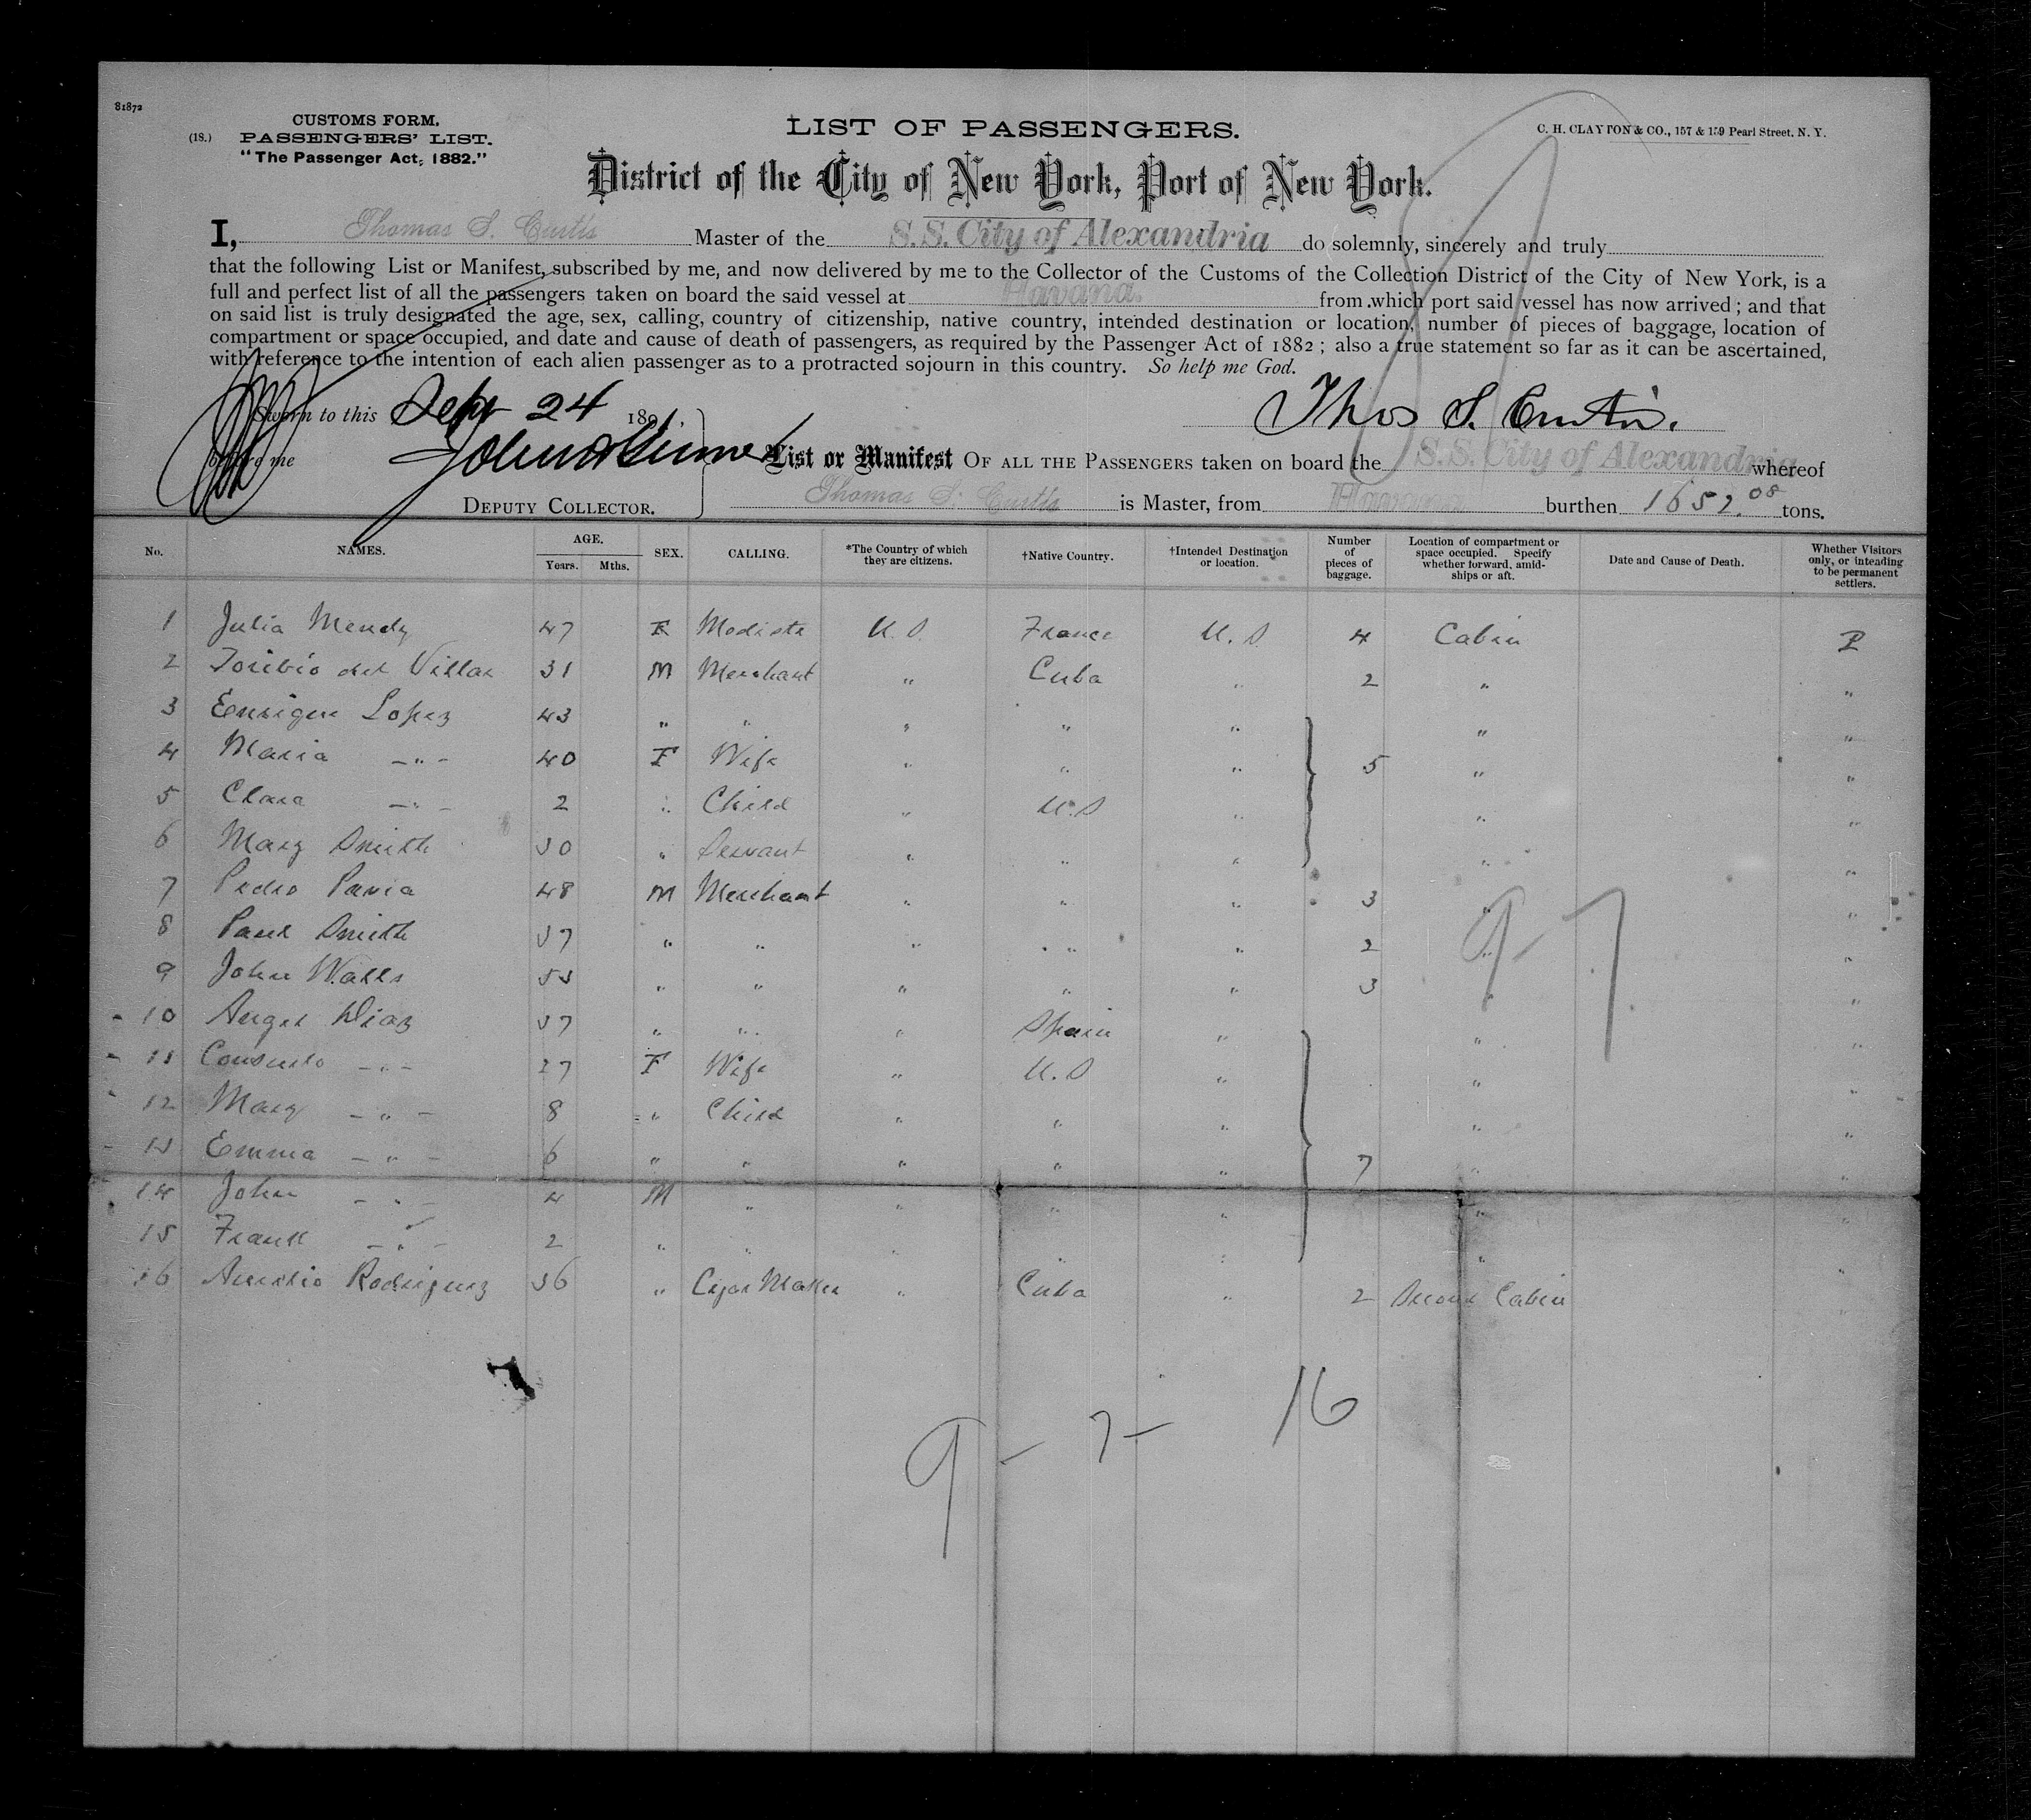 81872
CUSTOMS FORM.
(18.) PASSENGERS' LIST.
"The Passenger Act, 1882."
LIST OF PASSENGERS.
C. H. CLAYTON & CO., 157 & 159 Pearl Street, N. Y.
District of the City of New York, Port of New York.
I, Thomas S. Curtis Master of the S.S. City of Alexandria do solemnly, sincerely and truly
that the following List or Manifest, subscribed by me, and now delivered by me to the Collector of the Customs of the Collection District of the City of New York, is a
full and perfect list of all the passengers taken on board the said vessel at Havana. from which port said vessel has now arrived; and that
on said list is truly designated the age, sex, calling, country of citizenship, native country, intended destination or location, number of pieces of baggage, location of
compartment or space occupied, and date and cause of death of passengers, as required by the Passenger Act of 1882; also a true statement so far as it can be ascertained,
with reference to the intention of each alien passenger as to a protracted sojourn in this country. So help me God.
Sworn to this Sep 24 189
Thos S. Curtis.
before me
List or Manifest OF ALL THE PASSENGERS taken on board the S.S. City of Alexandria whereof
DEPUTY COLLECTOR.
Thomas S. Curtis is Master, from Havana burthen 1652.08 tons.
No. NAMES. AGE. Years. Mths. SEX. CALLING. *The Country of which they are citizens. †Native Country. †Intended Destination or location. Number of pieces of baggage. Location of compartment or space occupied. Specify whether forward, amidships or aft. Date and Cause of Death. Whether Visitors only, or intending to be permanent settlers.
1 Julia Mendy 47 F Modiste U.S. France U.S 4 Cabin P
2 Toribio del Villar 31 M Merchant " Cuba " 2 " "
3 Enrique Lopez 43 " " " " " " "
4 Maria -"- 40 F Wife " " " 5 " "
5 Clara -"- 2 " Child " U.S " " "
6 Mary Smith 30 " Servant " " " " "
7 Pedro Pavia 48 M Merchant " " " 3 " "
8 Paul Smith 37 " " " " " 2 " "
9 John Walls 53 " " " " " 3 " "
10 Angel Diaz 37 " " " Spain " " "
11 Consuelo -"- 27 F Wife " U.S " " "
12 Mary -"- 8 " Child " " " " "
13 Emma -"- 6 " " " " " 7 " "
14 John -"- 4 M " " " " " "
15 Frank -"- 2 " " " " " " "
16 Aurelio Rodriguez 36 " Cigar Maker " Cuba " 2 Second Cabin "
9-7
9 - 7 - 16